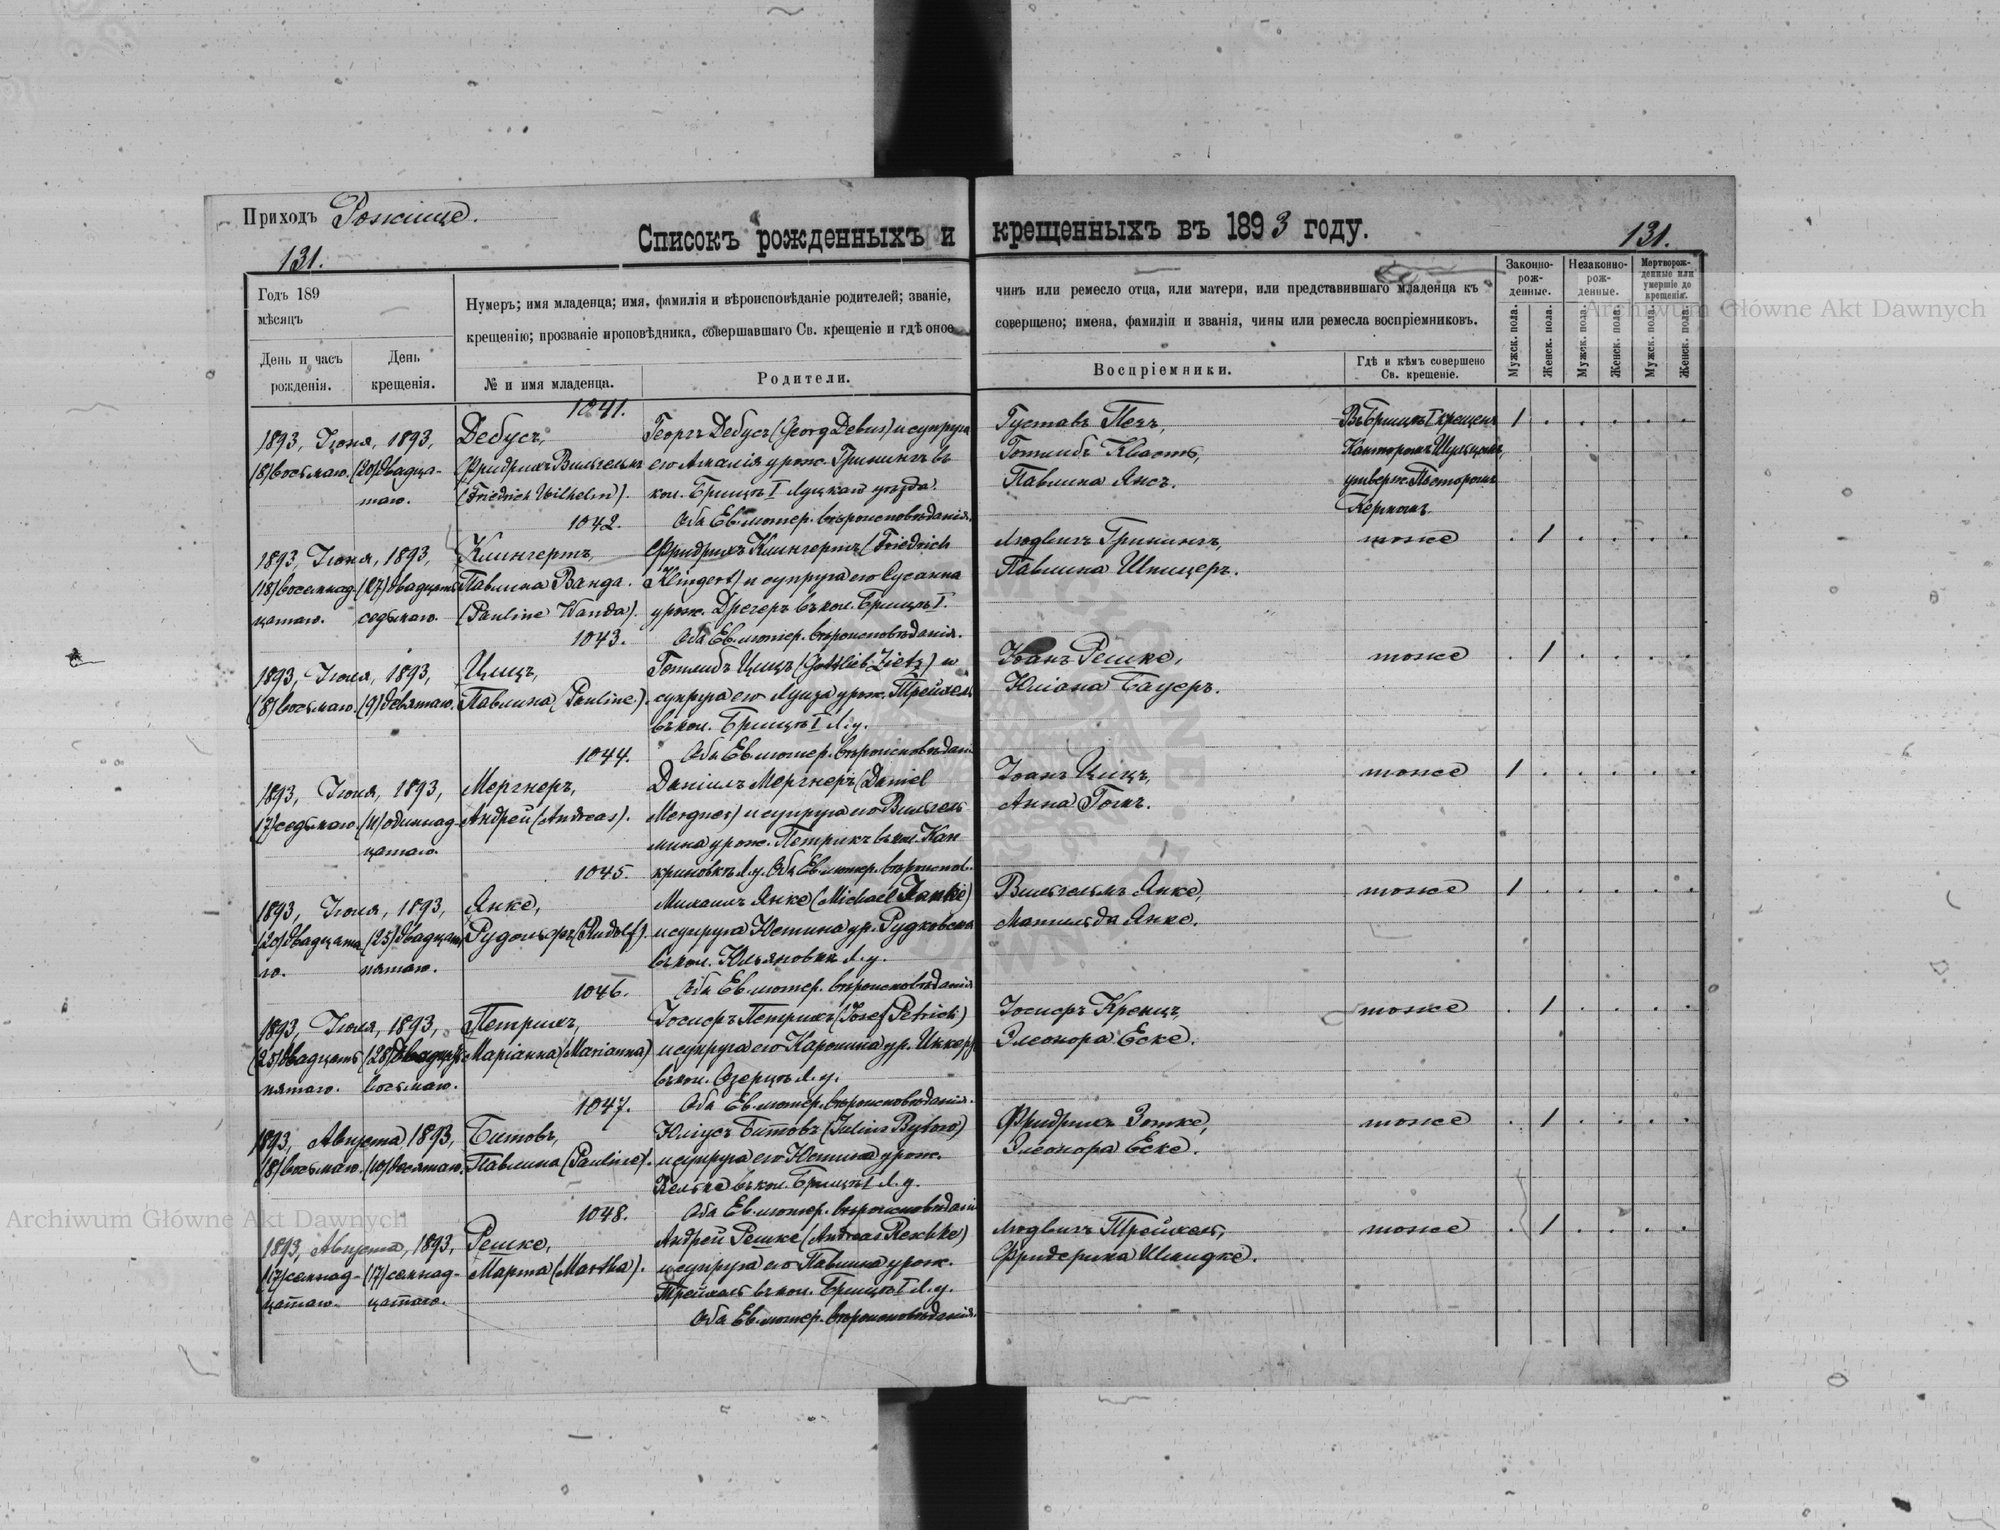 Приходъ Рожище.
Списокъ рожденныхъ и крещенныхъ въ 1893 году.
131.
131.
Годъ 189
мѣсяцъ
День и часъ рожденія.
День крещенія.
Нумеръ; имя младенца; имя, фамилія и вѣроисповѣданіе родителей; званіе, чинъ или ремесло отца, или матери, или представившаго младенца къ
крещенію; прозваніе проповѣдника, совершавшаго Св. крещеніе и гдѣ оное совершено; имена, фамиліи и званія, чины или ремесла воспріемниковъ.
№ и имя младенца.
Родители.
Воспріемники.
Гдѣ и кѣмъ совершено Св. крещеніе.
Законно-рож-денные.
Незаконно-рож-денные.
Мертворож-денные или умершіе до крещенія.
Мужск. пола.
Женск. пола.
Мужск. пола.
Женск. пола.
Мужск. пола.
Женск. пола.
1041.
1893, Іюня, 1893, Дебусъ, Георгъ Дебусъ (Georg Debus) и супруга Густавъ Пецъ, Въ Брищъ I крещенъ 1
(8) восьмаго. (20) двадца- Фридрихъ Вильгельмъ его Амалія урож. Грининъ въ Готлибъ Квастъ, Канторомъ Шульцомъ,
таго. (Friedrich Wilhelm). кол. Брищъ I Луцкаго уѣзда. Павлина Янсъ. утвержд. Пасторомъ
Оба Ев. лютер. вѣроисповѣданія. Керномъ.
1042.
1893, Іюня, 1893, Клингертъ, Фридрихъ Клингертъ (Friedrich Людвигъ Грининъ, тоже 1
(18) восемнад- (27) двадцать Павлина Ванда. Klingert) и супруга его Сусанна Павлина Шпицеръ.
цатаго. седьмаго. (Pauline Wanda). урож. Дрегеръ въ кол. Брищъ I.
Оба Ев. лютер. вѣроисповѣданія.
1043.
1893, Іюля, 1893, Цицъ, Готлибъ Цицъ (Gottlieb Zietz) и Іоанъ Решке, тоже 1
(8) восьмаго. (9) девятаго. Павлина (Pauline). супруга его Луиза урож. Трейхель Юліана Бауеръ.
въ кол. Брищъ I Л. у.
Оба Ев. лютер. вѣроисповѣдан.
1044.
1893, Іюля, 1893, Мергнеръ, Даніилъ Мергнеръ (Daniel Іоанъ Цицъ, тоже 1
(7) седьмаго. (11) одиннад- Андрей (Andreas). Mergner) и супруга его Вильгель Анна Гогъ.
цатаго. мина урож. Петрикъ въ кол. Кан
криновкѣ Л. у. Оба Ев. лютер. вѣроиспов.
1045.
1893, Іюля, 1893, Янке, Михаилъ Янке (Michael Janke) Вильгельмъ Янке, тоже 1
(20) двадцата (25) двадцать Рудольфъ (Rudolf). и супруга Юстина ур. Рудковска Матильда Янке.
го. пятаго. въ кол. Юльяновкѣ Л. у.
Оба Ев. лютер. вѣроисповѣданія
1046.
1893, Іюля, 1893, Петрихъ, Іосифъ Петрихъ (Josef Petrich) Іосифъ Кренцъ, тоже 1
(25) двадцать (28) двадцать Маріанна (Marianna) и супруга его Каролина ур. Иккерт Элеонора Еске.
пятаго. восьмаго. въ кол. Озерцѣ Л. у.
Оба Ев. лютер. вѣроисповѣданія.
1047.
1893, Августа, 1893, Битовъ, Юліусъ Битовъ (Julius Bytow) Фридрихъ Зотке, тоже 1
(8) восьмаго. (10) десятаго. Павлина (Pauline). и супруга его Юстина урож. Элеонора Еске.
въ кол. Брищъ I Л. у.
Оба Ев. лютер. вѣроисповѣдан
1048.
1893, Августа, 1893, Решке, Андрей Решке (Andreas Reschke) Людвигъ Трейхель, тоже 1
(17) семнад- (17) семнад- Марта (Martha). и супруга его Павлина урож. Фридерика Шмидке.
цатаго. цатаго. Трейхель въ кол. Брищъ I Л. у.
Оба Ев. лютер. вѣроисповѣданія.
Archiwum Główne Akt Dawnych
Archiwum Główne Akt Dawnych